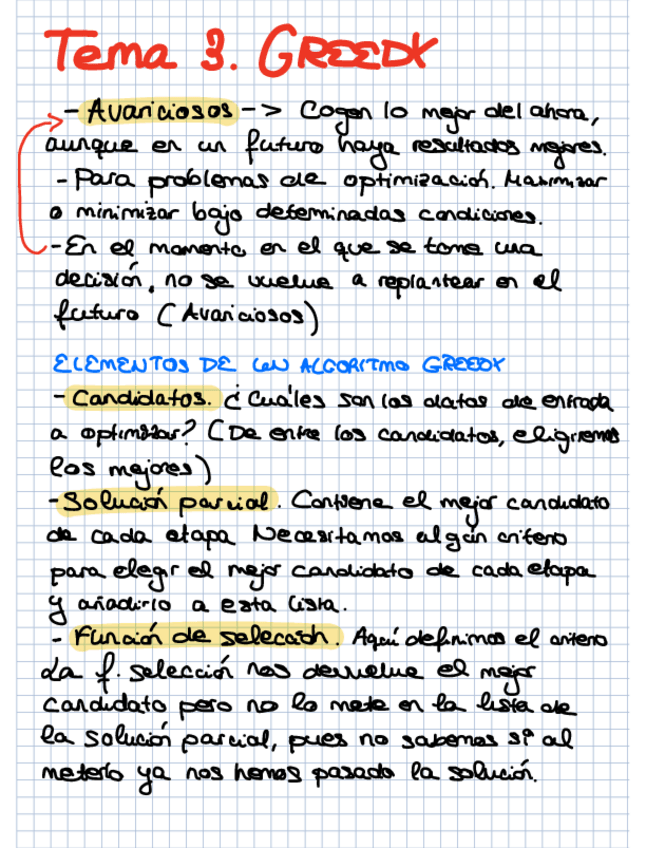 Tema 3. GREEDY
- Avariciosos -> Cogen lo mejor del ahora,
aunque en un futuro haya resultados mejores.
- Para problemas de optimización. Maximizar
o minimizar bajo determinadas condiciones.
- En el momento en el que se toma una
decisión, no se vuelve a replantear en el
futuro (Avariciosos)
ELEMENTOS DE UN ALGORITMO GREEDY
- Candidatos. ¿Cuáles son los datos de entrada
a optimizar? (De entre los candidatos, eligiremos
los mejores)
- Solución parcial. Contiene el mejor candidato
de cada etapa Necesitamos algún criterio
para elegir el mejor candidato de cada etapa
y añadirlo a esta lista.
- Función de selección. Aquí definimos el criterio
La f. selección nos devuelve el mejor
candidato pero no lo mete en la lista de
la solución parcial, pues no sabemos si al
meterlo ya nos hemos pasado la solución.